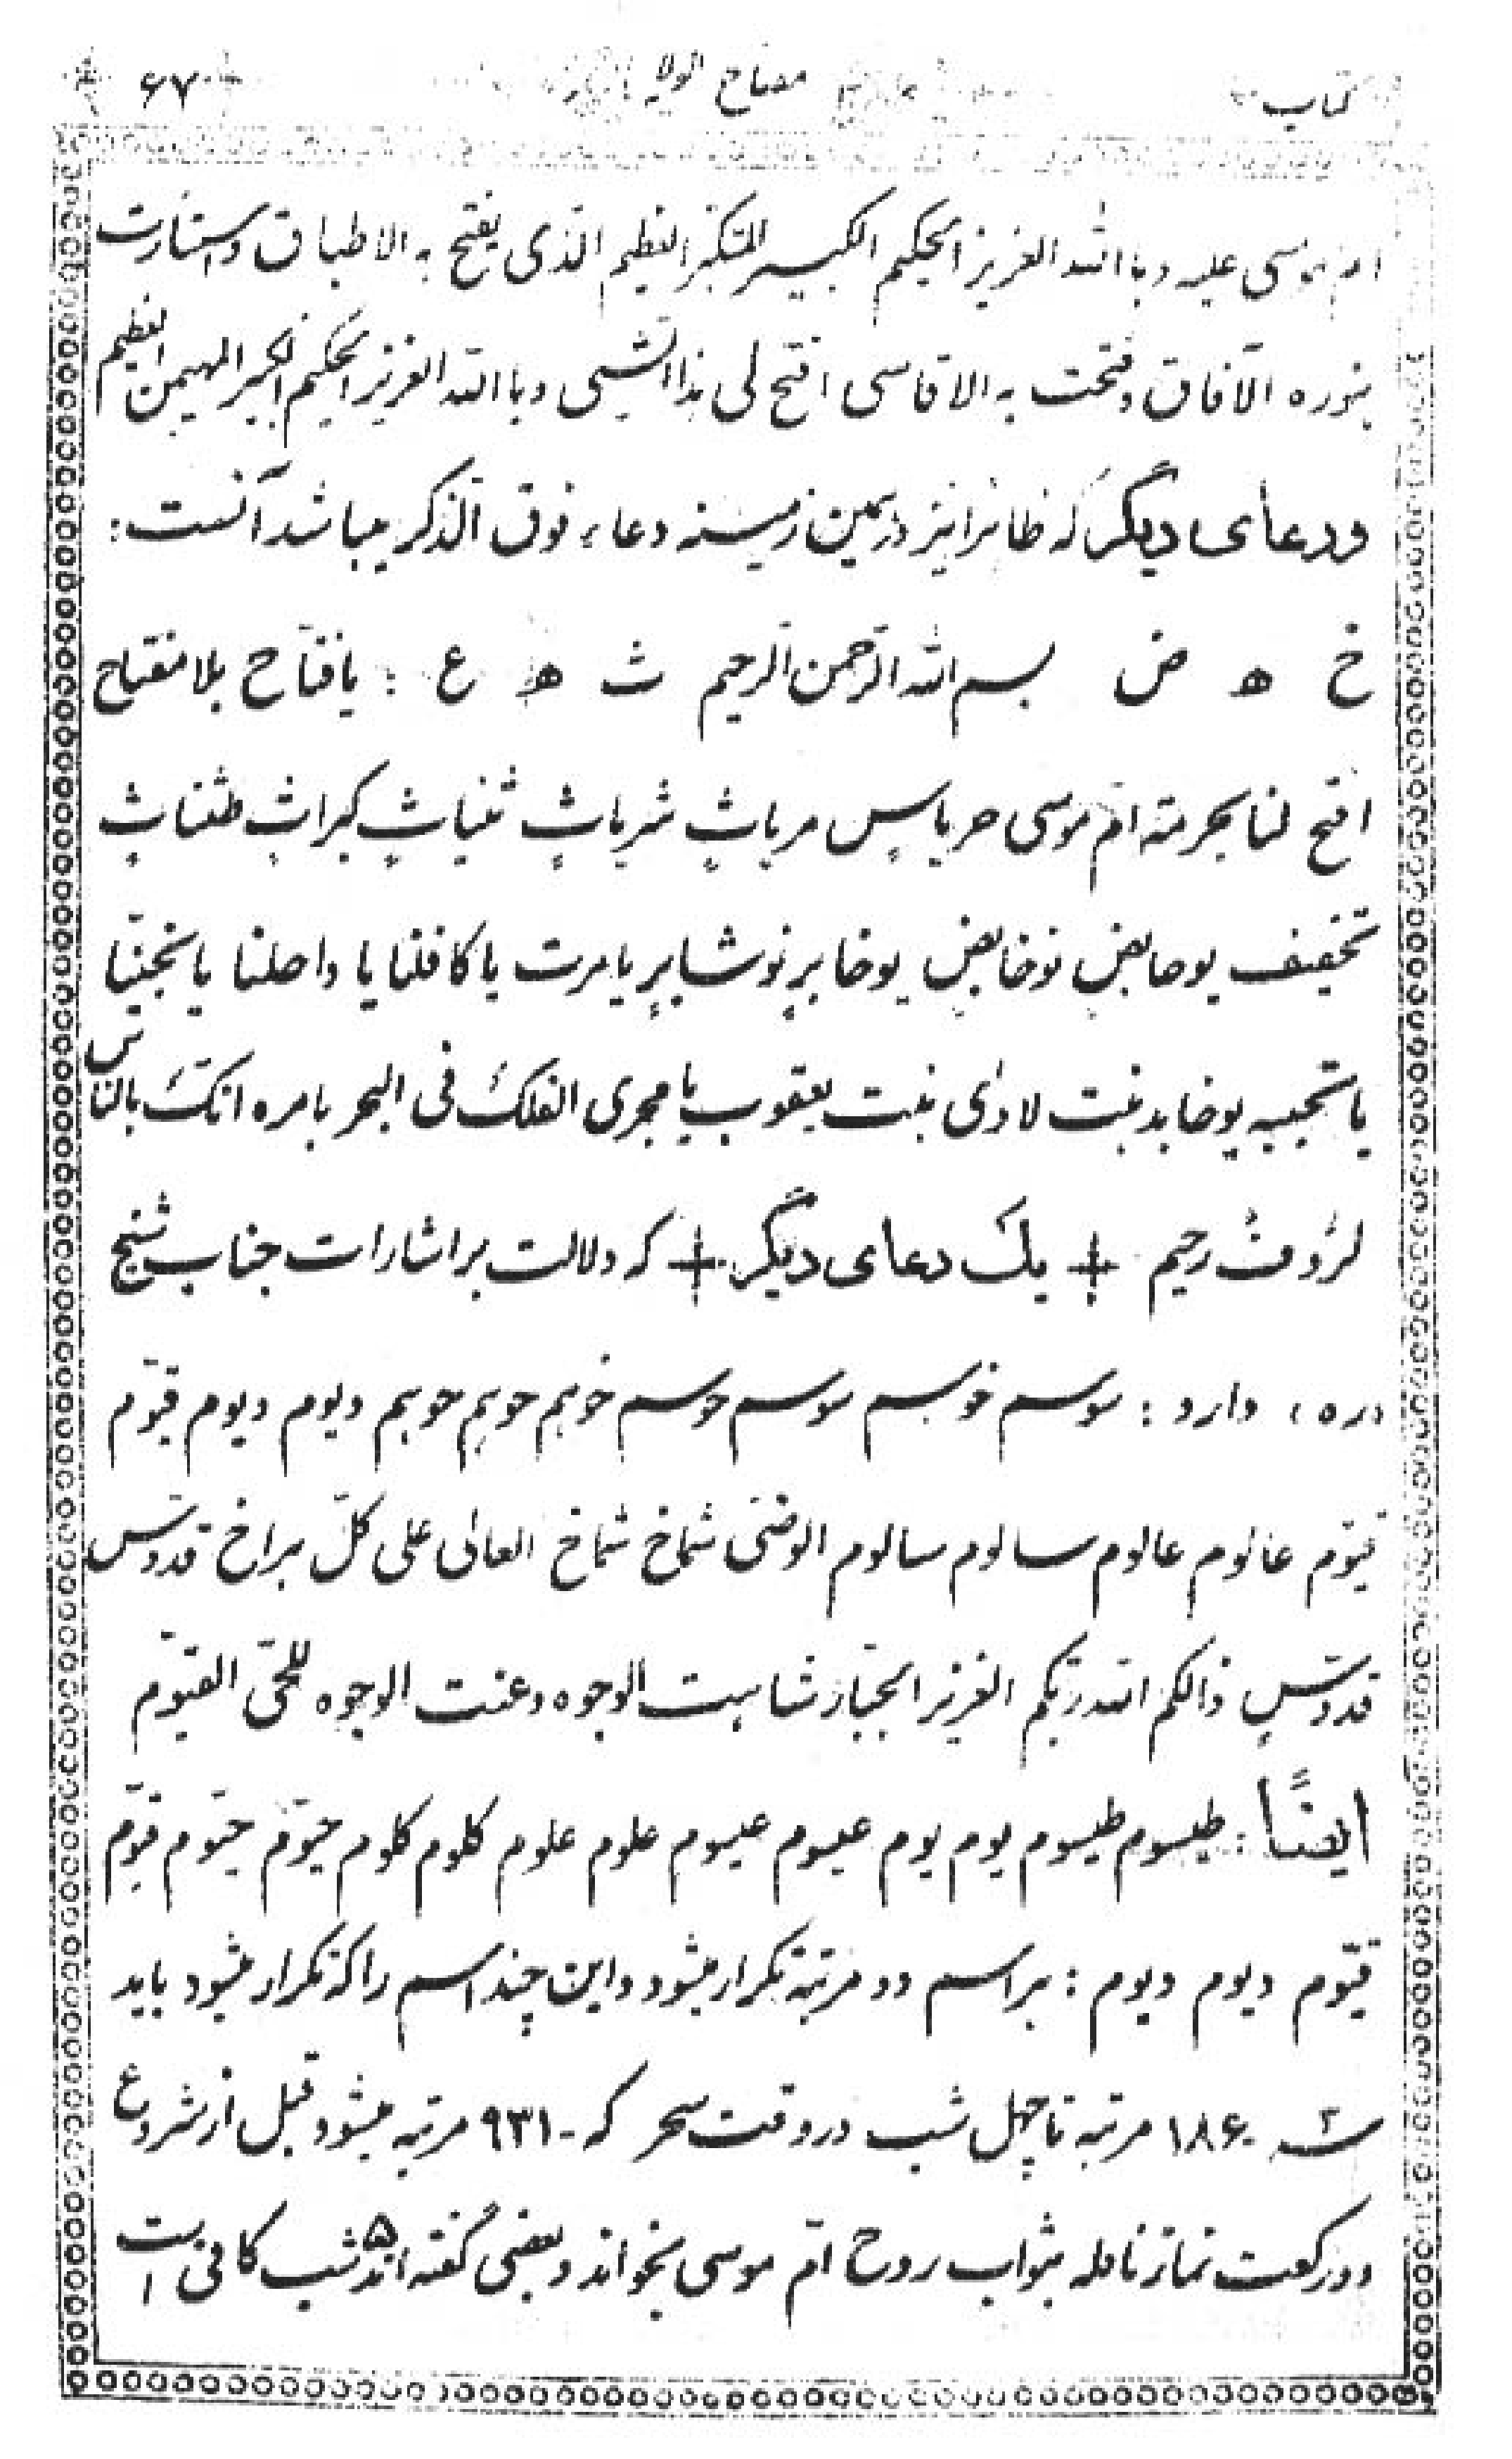 کتاب مفتاح الولایه ۶۷
ام موسی علیه و با الله العزیز الحکیم الکبیر المتکبر العظیم الذی یفتح به الاطباق و استنارت
بنوره الآفاق و فتحت به الاقاسی افتح لی هذا الشیی و با الله العزیز الحکیم الکبیر المهیمن العظیم
و دعای دیگر که ظاهرا نیز در همین زمینه دعاء فوق الذکر میباشد آنست :
خ ه ض بسم الله الرحمن الرحیم ث ه ع : یا فتاح بلا مفتاح
افتح لنا بحرمة ام موسی حریاسٍ مریاثٍ شریاثٍ ثنیاثٍ کبراثٍ طثناثٍ
تخفیف یوحابض نوخابض یوخابرٍ نوشابرٍ یا مرت یا کافلنا یا واصلنا یا نجینّا
یا نجیبه یوخابد بنت لاوٰی بنت یعقوب یا مجری الفلک فی البحر بامره انّک بالناس
لرؤفٌ رحیم + یک دعای دیگر + که دلالت بر اشارات جناب شیخ
دره ، دارد : سوسم خوسم سوسم حوسم خوہم حوہم حوہم دیوم دیوم قیّوم
قیّوم عالوم عالوم سالوم سالوم الوضی شماخ شماخ العالی علی کلّ براخ قدوّس
قدوّسٍ ذالکم الله ربّکم العزیز الجبّار شاهت الوجوه و عنت الوجوه للحیّ القیّوم
ایضاً : طیسوم طیسوم یوم یوم عیوم عیوم علوم علوم کلوم کلوم حیّوم حیّوم قیّوم
قیّوم دیوم دیوم : هر اسم دو مرتبه تکرار میشود و این چند اسم را که تکرار میشود باید
۱۸۶۰ مرتبه تا چهل شب در وقت سحر که ۹۳۱۰ مرتبه میشود قبل از شروع
دو رکعت نماز نافله بثواب روح امّ موسی بخواند و بعضی گفته اند ۵ شب کافی است